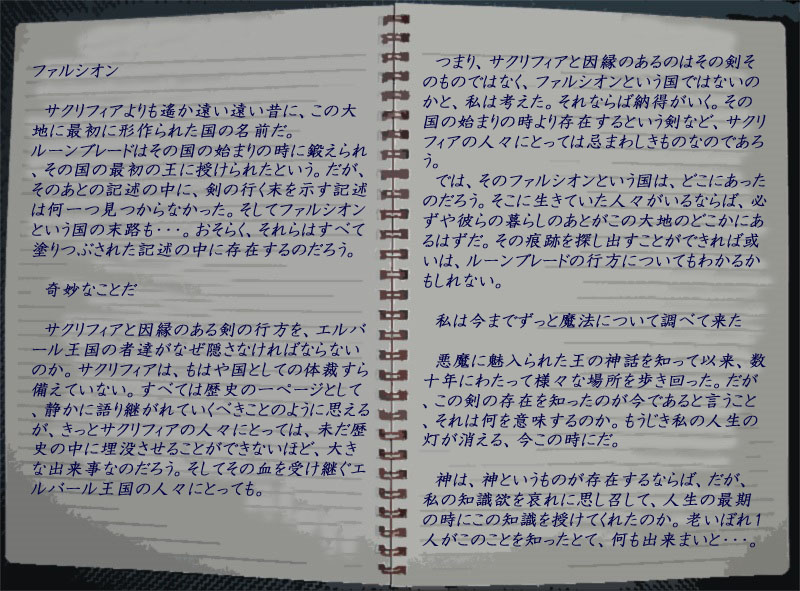 ファルシオン
サクリフィアよりも遙か遠い遠い昔に、この大
地に最初に形作られた国の名前だ。
ルーンブレードはその国の始まりの時に鍛えられ
、その国の最初の王に授けられたという。だが、
そのあとの記述の中に、剣の行く末を示す記述
は何一つ見つからなかった。そしてファルシオン
という国の末路も・・・。おそらく、それらはすべて
塗りつぶされた記述の中に存在するのだろう。
奇妙なことだ
サクリフィアと因縁のある剣の行方を、エルバ
ール王国の者達がなぜ隠さなければならない
のか。サクリフィアは、もはや国としての体裁すら
備えていない。すべては歴史の一ページとして
、静かに語り継がれていくべきことのように思える
が、きっとサクリフィアの人々にとっては、未だ歴
史の中に埋没させることができないほど、大き
な出来事なのだろう。そしてその血を受け継ぐエ
ルバール王国の人々にとっても。
つまり、サクリフィアと因縁のあるのはその剣そ
のものではなく、ファルシオンという国ではないの
かと、私は考えた。それならば納得がいく。その
国の始まりの時より存在するという剣など、サクリ
フィアの人々にとっては忌まわしきものなのであろ
う。
では、そのファルシオンという国は、どこにあった
のだろう。そこに生きていた人々がいるならば、必
ずや彼らの暮らしのあとがこの大地のどこかにあ
るはずだ。その痕跡を探し出すことができれば或
いは、ルーンブレードの行方についてもわかるか
もしれない。
私は今までずっと魔法について調べて来た
悪魔に魅入られた王の神話を知って以来、数
十年にわたって様々な場所を歩き回った。だが
、この剣の存在を知ったのが今であると言うこと
、それは何を意味するのか。もうじき私の人生の
灯が消える、今この時にだ。
神は、神というものが存在するならば、だが、
私の知識欲を哀れに思し召して、人生の最期
の時にこの知識を授けてくれたのか。老いぼれ1
人がこのことを知ったとて、何も出来まいと・・・。